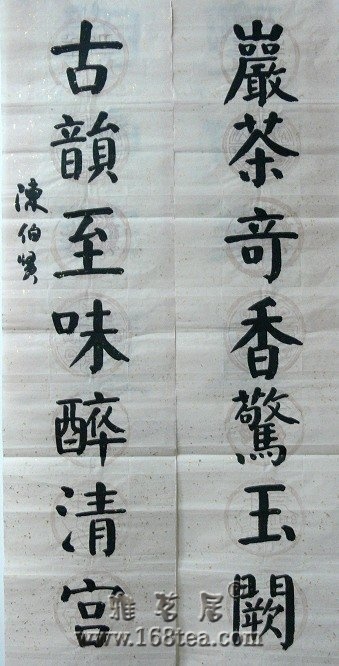 巖茶奇香驚玉闕
古韻至味醉清宫
陳伯賢
雅茗居®
www.168tea.com